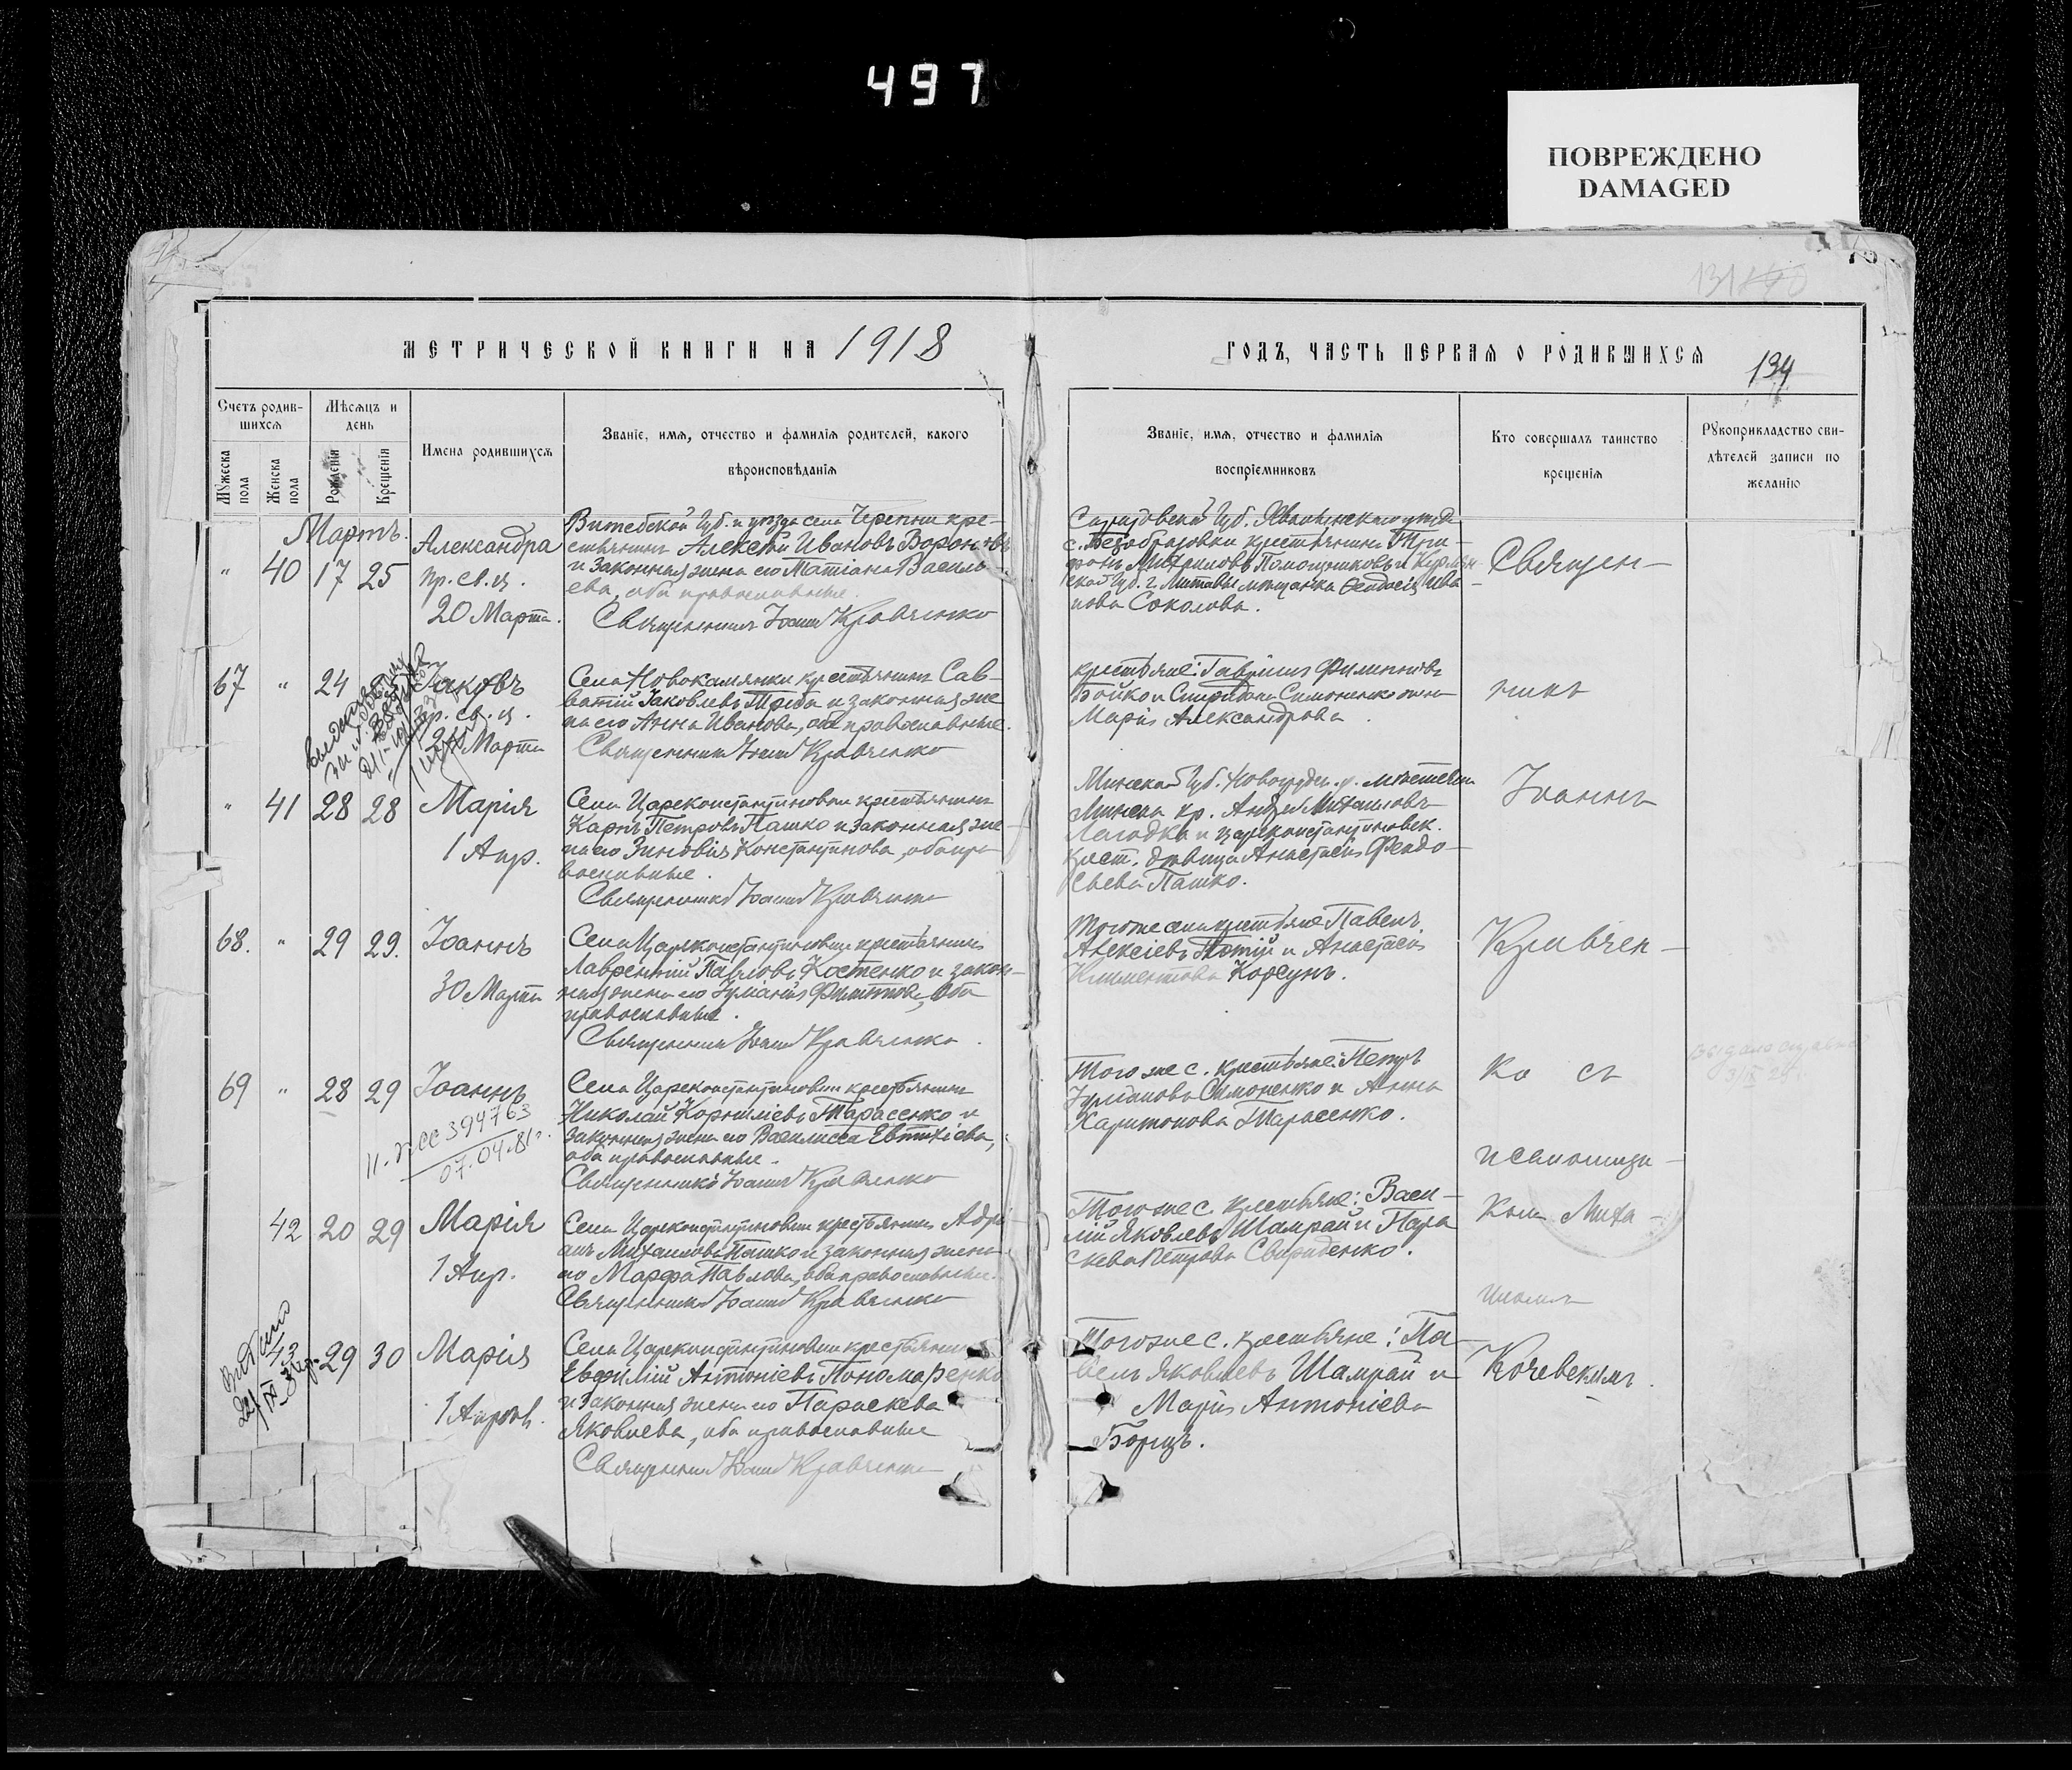 497
ПОВРЕЖДЕНО
DAMAGED
МЕТРИЧЕСКОЙ КНИГИ НА 1918
ГОДЪ, ЧАСТЬ ПЕРВАЯ О РОДИВШИХСЯ
134
Счетъ родив-
шихся
Мужеска пола
Женска пола
Мѣсяцъ и
день
Рожденія
Крещенія
Имена родившихся
Званіе, имя, отчество и фамилія родителей, какого
вѣроисповѣданія
Званіе, имя, отчество и фамилія
воспріемниковъ
Кто совершалъ таинство
крещенія
Рукоприкладство сви-
дѣтелей записи по
желанію
Мартъ.
" 40 17 25
Александра
пр. св. ц.
20 Марта.
Витебской Губ. и уѣзда села кре-
стьянинъ Алексѣй Ивановъ Вороновъ
и законная жена его Татіана Василь-
ева, оба православные.
Священникъ Іоаннъ Кравченко
Саратовской Губ. уѣзда
с. Безобразовки крестьянинъ Три-
фонъ Помощниковъ и
ской Губ. г. Митавы мѣщанка Ѳеодосія Ива-
нова Соколова.
67 " 24
Іаковъ
пр. св. ц.
24 Марта
Села Новокамянки крестьянинъ Сав-
ватій Іаковлевъ и законная же
на его Анна Иванова, оба православные.
Священникъ Іоаннъ Кравченко
крестьяне: Гавріилъ Филипповъ
Бойко и Спиридона Симоненко жена
Марія Александрова.
" 41 28 28
Марія
1 Апр.
Села Цареконстантиновки крестьянинъ
Карпъ Петровъ Пашко и законная же-
на его Зиновія Константинова, оба пра-
вославные.
Священникъ Іоаннъ Кравченко
Минской Губ. у. мѣстечка
кр. Андрей Михаиловъ
Лагодка и цареконстантиновск.
крест. дѣвица Анастасія Феодо-
сьева Пашко.
68. " 29 29.
Іоаннъ
30 Марта
Села Цареконстантиновки крестьянинъ
Лаврентій Павловъ Костенко и закон-
ная жена его Іуліанія Филиппова, оба
православные.
Священникъ Іоаннъ Кравченко
Того же села крестьяне: Павелъ
Алексіевъ и Анастасія
Климентова Корсунъ.
69 " 28 29
Іоаннъ
II-ЛСС 394763
07.04.81г.
Села Цареконстантиновки крестьянинъ
Николай Корниліевъ Тарасенко и
законная жена его Василисса Евтихіева,
оба православные.
Священникъ Іоаннъ Кравченко
Того же с. крестьяне: Петръ
Іуліановъ Симоненко и Анна
Харитонова Тарасенко.
42 20 29
Марія
1 Апр.
Села Цареконстантиновки крестьянинъ Адрі-
анъ Михаиловъ Пашко и законная жена
его Марфа Павлова, оба православные.
Священникъ Іоаннъ Кравченко
Того же с. крестьяне: Васи-
лій Яковлевъ Шамрай и Пара
скева Петрова Свириденко.
43 29 30
Марія
1 Апрѣля.
Села Цареконстантиновки крестьянинъ
Евфимій Антоніевъ Пономаренко
и законная жена его Параскева
Яковлева, оба православные
Священникъ Іоаннъ Кравченко
Того же с. крестьяне: Па-
велъ Яковлевъ Шамрай и
Марія Антоніева
Борщъ.
Священ-
никъ
Іоаннъ
Кравчен-
ко съ
псаломщи-
комъ Миха-
иломъ
Кочевскимъ.